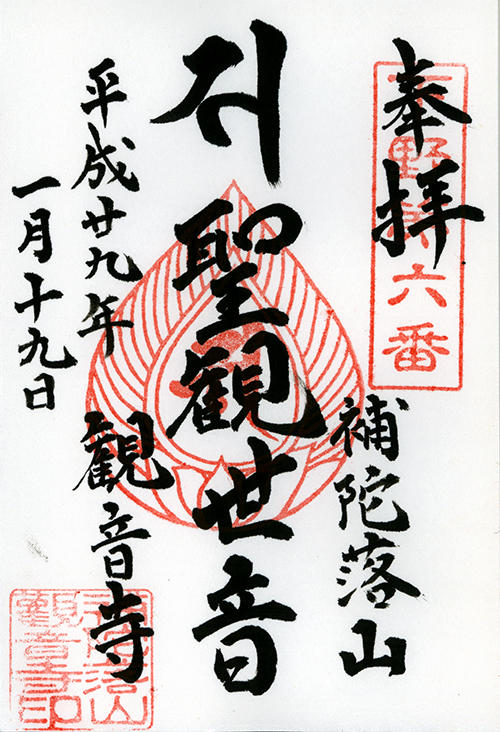 奉拝
六番
補陀落山
聖観世音
観音寺
平成廿九年
一月十九日